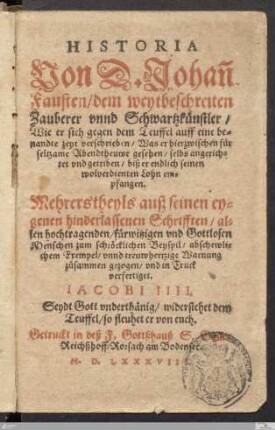 HISTORIA
Von D. Johañ
Fausten/dem weytbeschreiten
Zauberer vnnd Schwartzkünstler/
Wie er sich gegen dem Teuffel auff eine be-
nandte zeyt verschrieben/ Was er hierzwischen für
seltzame Abendtheuwr gesehen/ selbs angerich-
tet vnd getriben/ biß er endlich seinen
wolverdienten Lohn em-
pfangen.
Mehrers theyls auß seinen ey-
genen hinderlassenen Schrifften/ al-
len hochtragenden/ fürwitzigen vnd Gottlosen
Menschen zum schröcklichen Beyspil/ abschewli-
chem Exempel/ vnnd treuwhertzige Warnung
zusammen gezogen/ vnd in Truck
verfertiget.
IACOBI IIII.
Seydt Gott vnderthänig/ widerstehet dem
Teuffel/ so fleuhet er von euch.
Getruckt in deß F. Gottshauß S.
Reichßhoff/ Roschach am Bodensee.
M. D. LXXXVIII